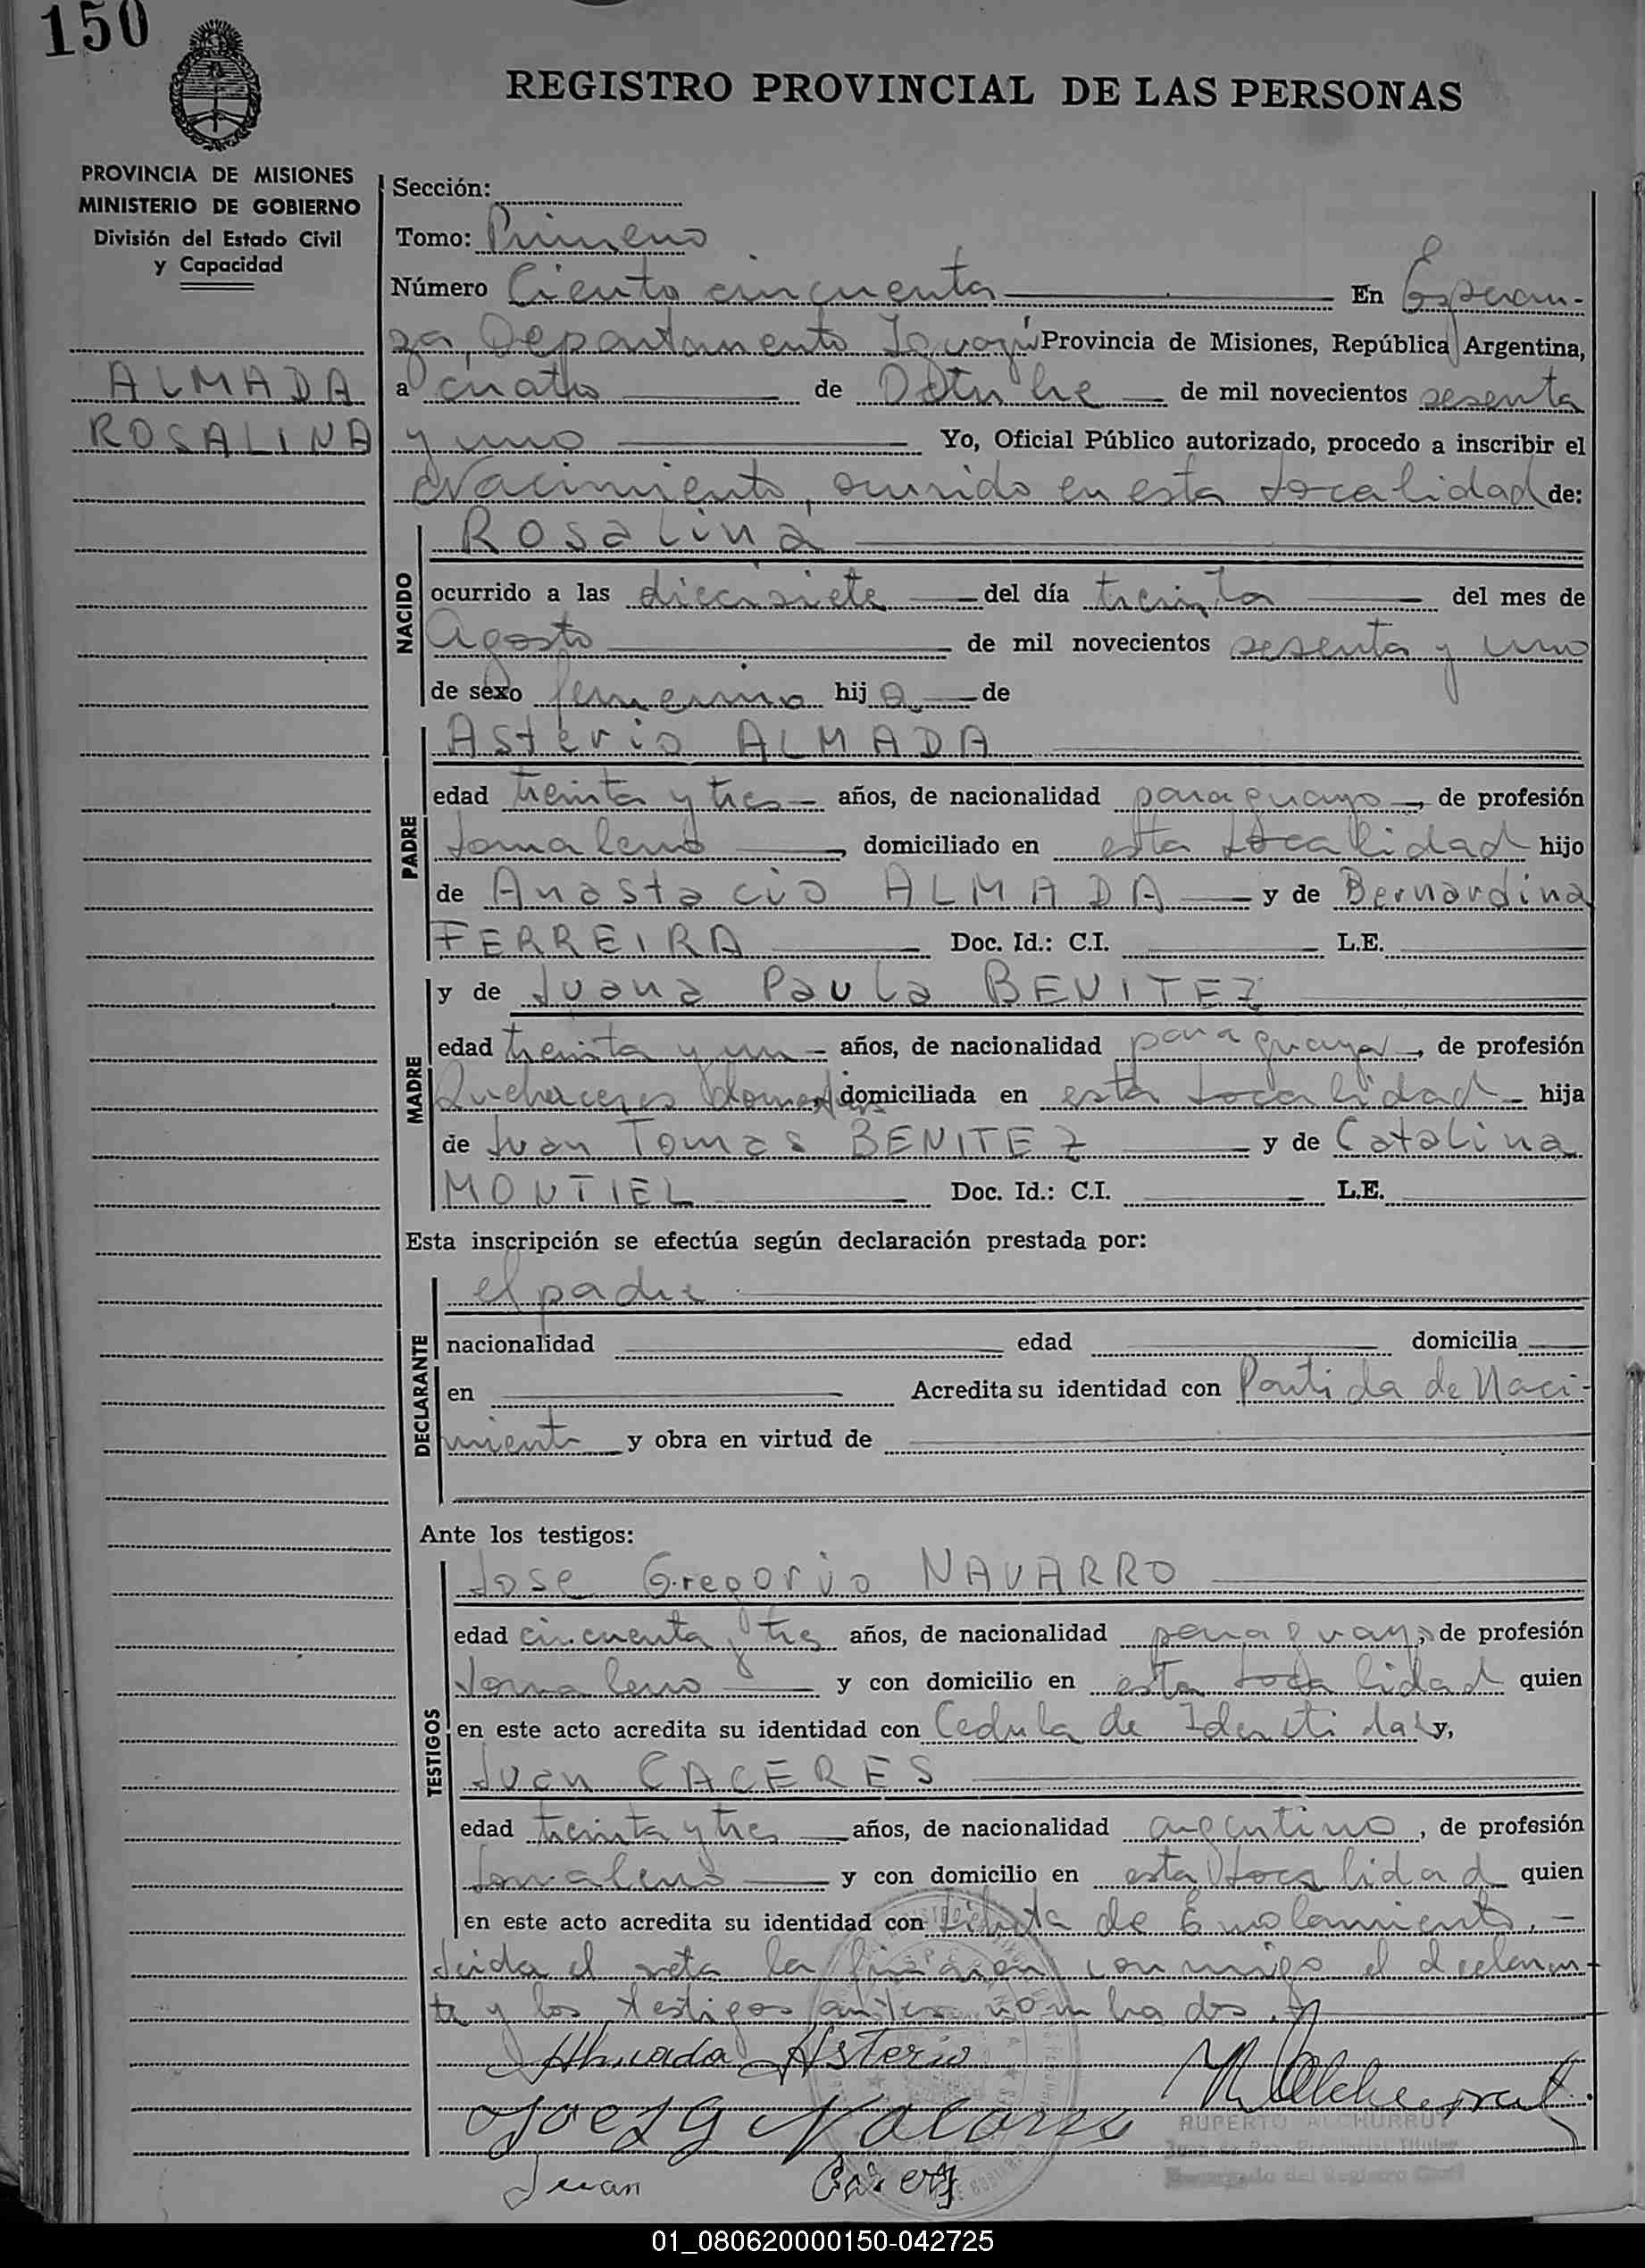 150
REGISTRO PROVINCIAL DE LAS PERSONAS
PROVINCIA DE MISIONES
MINISTERIO DE GOBIERNO
División del Estado Civil
y Capacidad
ALMADA
ROSALINA
Sección:
Tomo: Primero
Número Ciento cincuenta En Esperan-
za, Departamento Iguazú Provincia de Misiones, República Argentina,
a cuatro de Octubre de mil novecientos sesenta
y uno Yo, Oficial Público autorizado, procedo a inscribir el
Nacimiento, ocurrido en esta localidad de:
NACIDO
Rosalina
ocurrido a las diecisiete del día treinta del mes de
Agosto de mil novecientos sesenta y uno
de sexo femenino hija de
PADRE
Asterio ALMADA
edad treinta y tres años, de nacionalidad paraguayo, de profesión
Jornalero, domiciliado en esta localidad hijo
de Anastacio ALMADA y de Bernardina
FERREIRA Doc. Id.: C.I. L.E.
MADRE
y de Juana Paula BENITEZ
edad treinta y un años, de nacionalidad paraguaya, de profesión
Quehaceres domiciliada en esta localidad hija
de Juan Tomas BENITEZ y de Catalina
MONTIEL Doc. Id.: C.I. L.E.
Esta inscripción se efectúa según declaración prestada por:
DECLARANTE
el padre
nacionalidad edad domicilia
en Acredita su identidad con Partida de Naci-
miento y obra en virtud de
Ante los testigos:
TESTIGOS
Jose Gregorio NAVARRO
edad cincuenta y tres años, de nacionalidad paraguayo, de profesión
Jornalero y con domicilio en esta localidad quien
en este acto acredita su identidad con Cedula de Identidad y,
Juan CACERES
edad treinta y tres años, de nacionalidad argentino, de profesión
Jornalero y con domicilio en esta localidad quien
en este acto acredita su identidad con Libreta de Enrolamiento.-
Leida el acta la firman conmigo el declaran-
te y los testigos antes nombrados.
Almada Asterio
RUPERTO ALCHURRUT
Juan
Encargado del Registro Civil
01_080620000150-042725